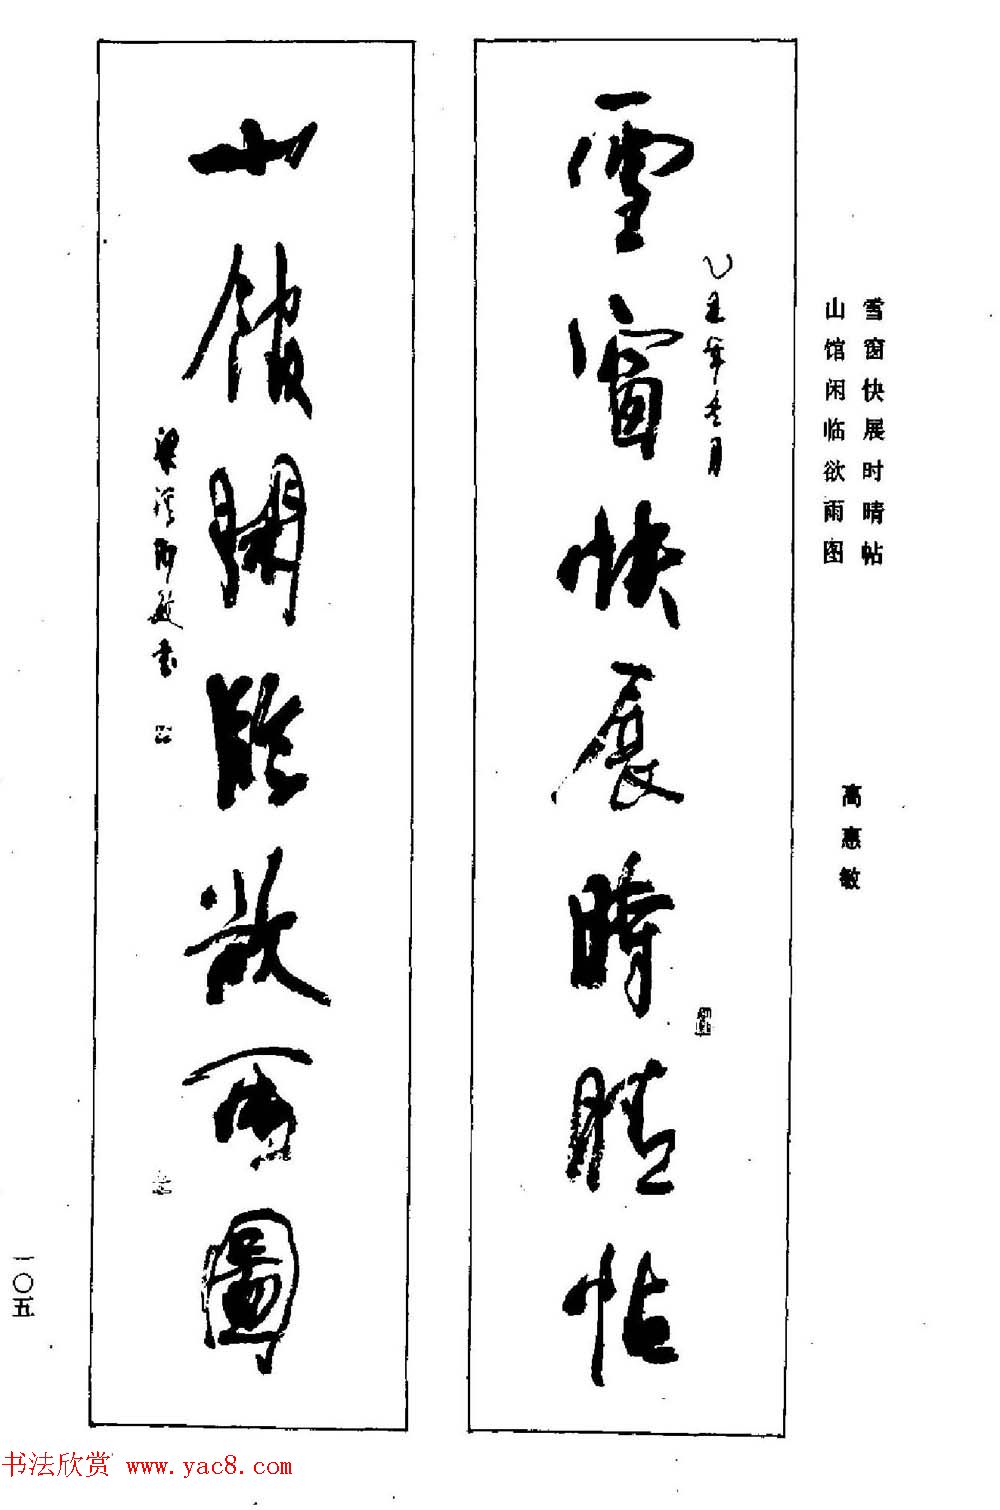 雪窗快展时晴帖
山馆闲临欲雨图
高惠敏
雪窗快展時晴帖
山館閑臨欲雨圖
一〇五
书法欣赏 www.yac8.com